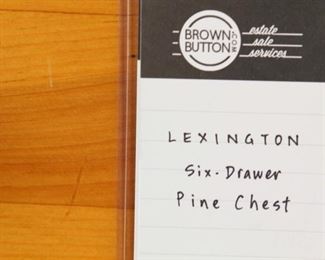 BROWN
BUTTON
.COM
estate
sale
services
LEXINGTON
Six-Drawer
Pine Chest